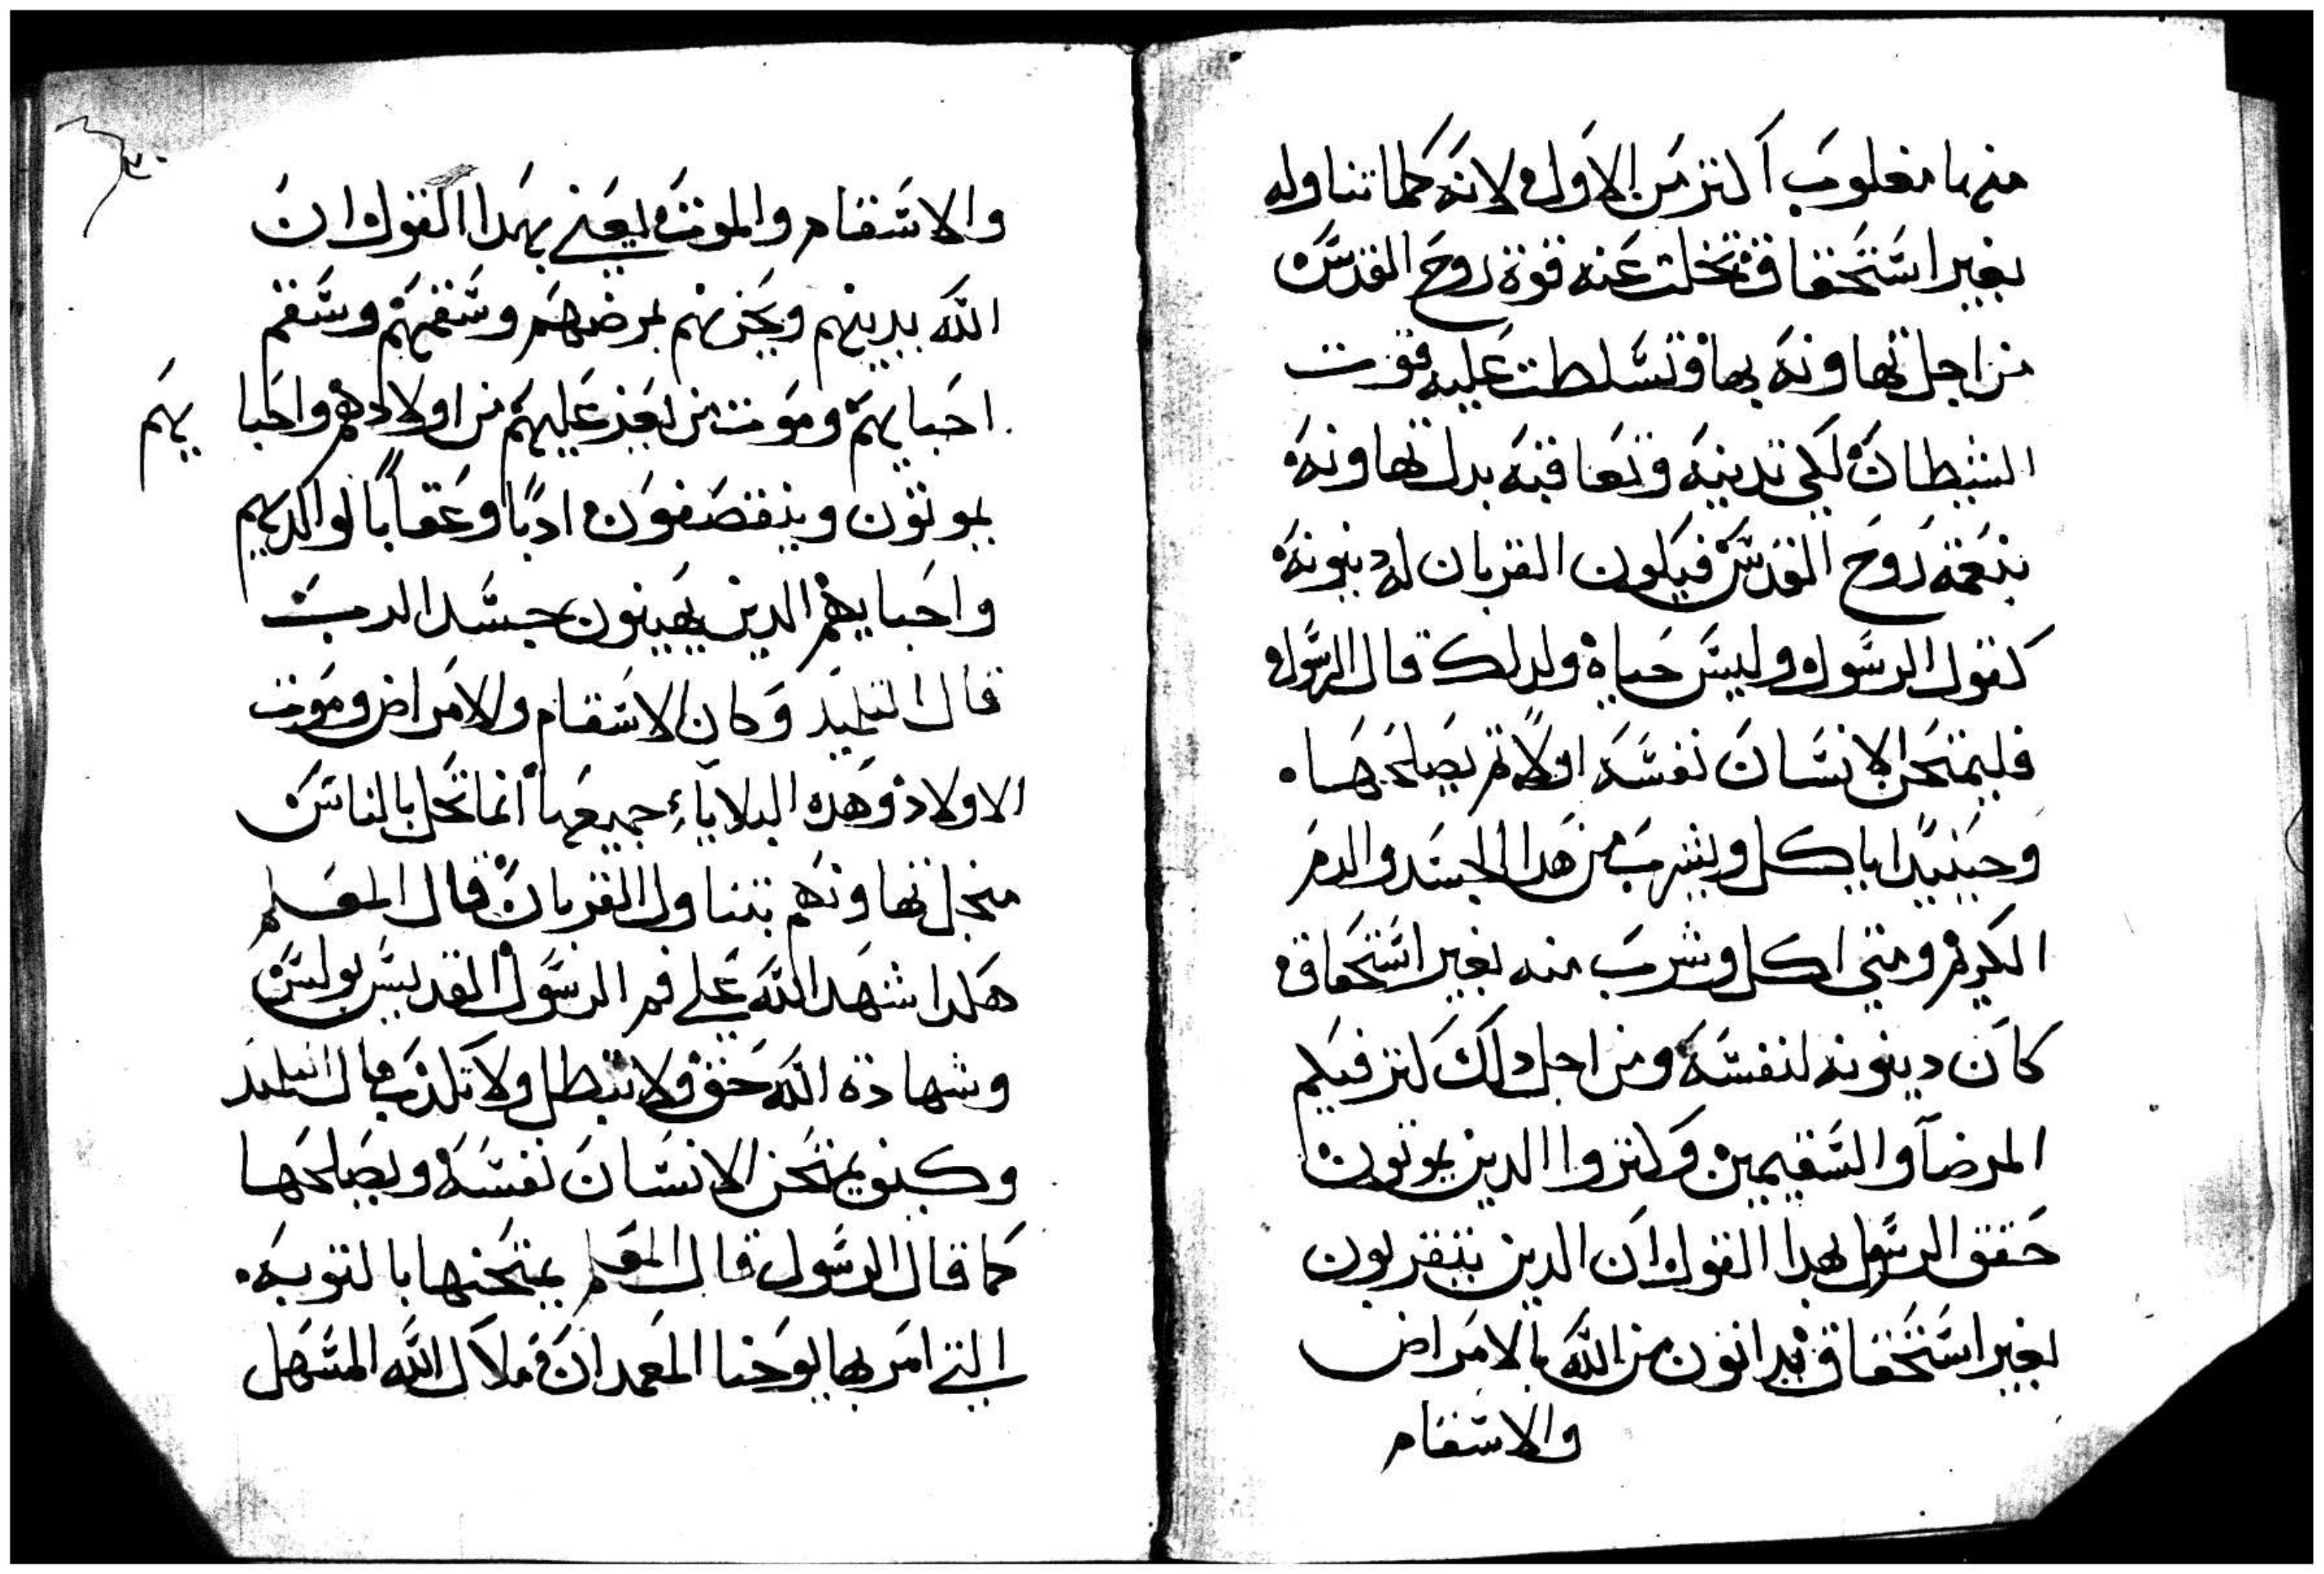 منها مغلوب اكتر من الاول لانه كلما تناوله
بغير استحقاق تخلت عنه قوة روح القدس
من اجل تهاونه بها وتسلطت عليه قوت
الشيطان لكي تدينه وتعاقبه بدل تهاونه
بنعمة روح القدس فيكون القربان له دينونه
كقول الرسول وليس حياه ولدلك قال الرسول
فليمتحن الانسان نفسه اولًا تم يصلحها .
وحينيدا ياكل ويشرب من هدا الجسد والدم
الكريم ومتي اكل وشرب منه بغير استحقاق
كان دينونه لنفسه ومن اجل دلك كتر فيكم
المرضآ والسقيمين وكتروا الدين يموتون
حقق الرسول بهدا القول ان الدين يتقربون
بغير استحقاق يدانون من الله بالامراض
والاسقام
٢٠
والاسقام والموت يعني بهدا القول ان
الله يدينهم ويحزنهم بمرضهم وسقمهم وسقم
احبايهم وموت من يعز عليهم من اولادهم واحبا يهم
يموتون وينقصفون ادبًا وعقابًا لوالديهم
واحبايهم الدين يهينون جسد الرب
قال التلميد وكان الاسقام والامراض وموت
الاولاد وهده البلاياء جميعها انما تحل بالناس
منجل تهاونهم بتناول القربان قال المعلم
هكدا شهد الله علي فم الرسول القديس بولس
وشهادة الله حق ولا تبطل ولا تكدب قال التلميد
وكيف يمتحن الانسان نفسه ويصلحها
كما قال الرسول قال المعلم يمتحنها بالتوبه .
التي امر بها يوحنا المعمدان ملاك الله المسهل